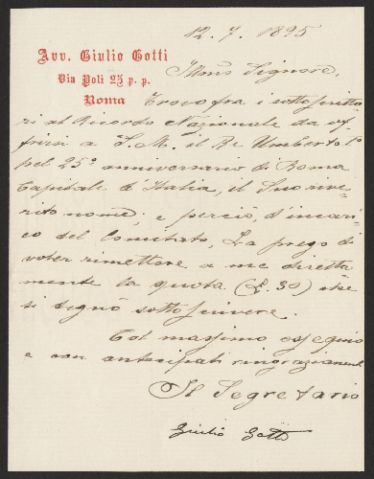 12. 7. 1895
Avv. Giulio Gotti
Via Poli 25 p. p.
Roma
Illmo Signore,
Trovo fra i sottoscritto
ri al Ricordo Nazionale da of
frirsi a S. M. il Re Umberto I°
pel 25° anniversario di Roma
Capitale d'Italia, il Suo rive
rito nome; e perciò, d'incari
co del Comitato, La prego di
voler rimettere a me diretta
mente la quota (£. 30) che
si degnò sottoscrivere.
Col massimo ossequio
e con anticipati ringraziamenti
Il Segretario
Giulio Gotti